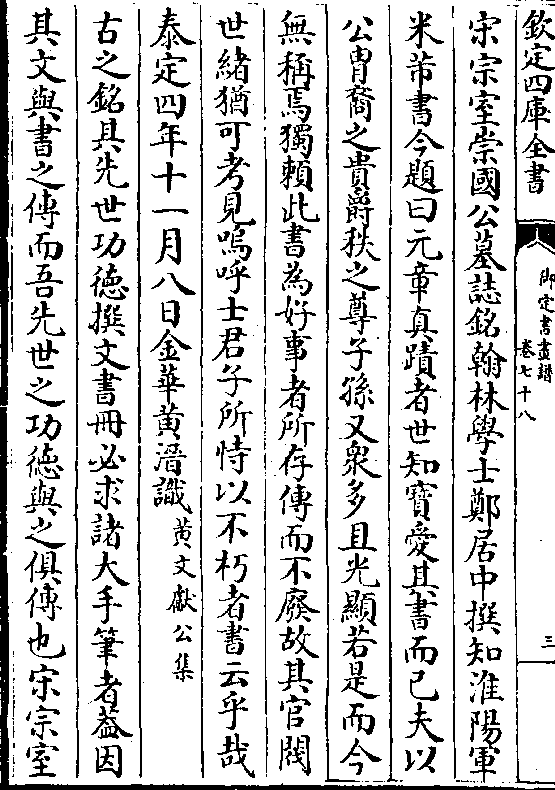 欽定四庫全書
御定書畫譜
卷七十八
三
宋宗室崇國公墓誌銘翰林學士鄭居中撰知淮陽軍
米芾書今題曰元章真蹟者世知寶愛其書而已夫以
公胄裔之貴爵秩之尊子孫又衆多且光顯若是而今
無稱焉獨賴此書為好事者所存傳而不廢故其官閥
世緒猶可考見嗚呼士君子所恃以不朽者書云乎哉
泰定四年十一月八日金華黄溍識黄文獻公集
古之銘其先世功德撰文書冊必求諸大手筆者葢因
其文與書之傳而吾先世之功德與之俱傳也宋宗室